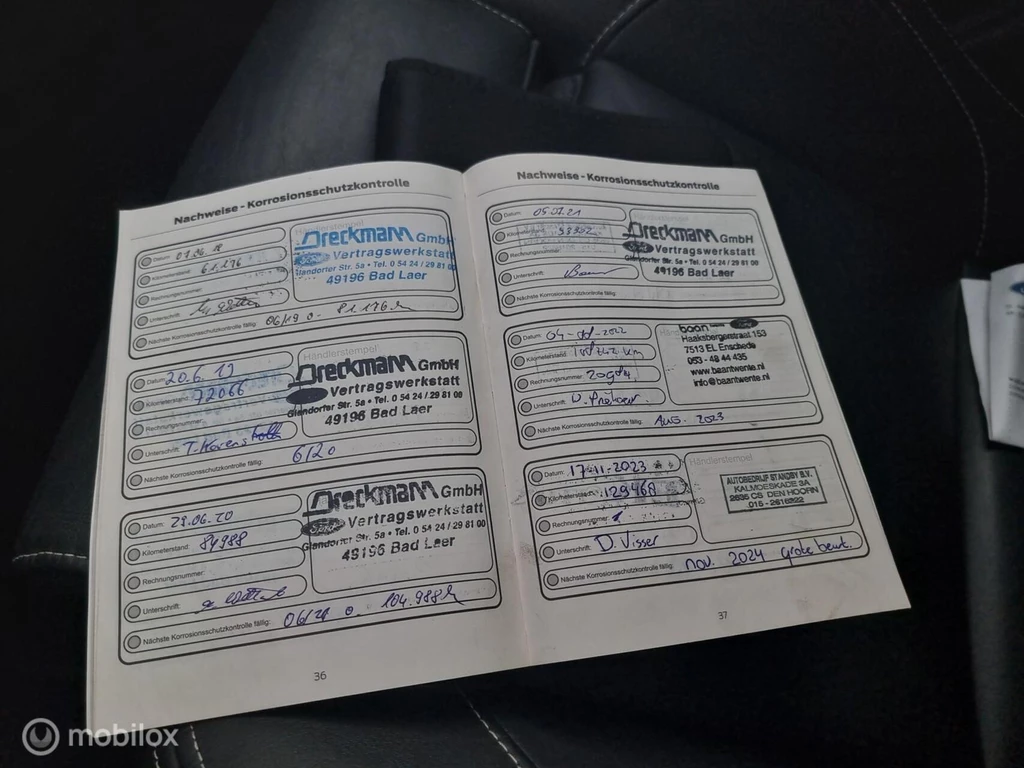 Nachweise - Korrosionsschutzkontrolle
Datum:
61.176
Kilometerstand:
Rechnungsnummer:
Unterschrift:
Nächste Korrosionsschutzkontrolle fällig: 06/19 o. 81.176
Händlerstempel
Dreckmann GmbH
Vertragswerkstatt
Glandorfer Str. 5a • Tel. 0 54 24 / 29 81 00
49196 Bad Laer
Datum: 20.6.19
Kilometerstand: 72066
Rechnungsnummer:
Unterschrift:
Nächste Korrosionsschutzkontrolle fällig: 6/20
Händlerstempel
Dreckmann GmbH
Vertragswerkstatt
Glandorfer Str. 5a • Tel. 0 54 24 / 29 81 00
49196 Bad Laer
Datum: 29.06.20
Kilometerstand: 84988
Rechnungsnummer:
Unterschrift:
Nächste Korrosionsschutzkontrolle fällig: 06/21 o. 104.988
Dreckmann GmbH
Ford Vertragswerkstatt
Glandorfer Str. 5a • Tel. 0 54 24 / 29 81 00
49196 Bad Laer
36
Nachweise - Korrosionsschutzkontrolle
Datum: 05.07.21
Kilometerstand:
Rechnungsnummer:
Unterschrift:
Nächste Korrosionsschutzkontrolle fällig:
Händlerstempel
Dreckmann GmbH
Ford Vertragswerkstatt
Glandorfer Str. 5a • Tel. 0 54 24 / 29 81 00
49196 Bad Laer
Datum:
Kilometerstand: km
Rechnungsnummer:
Unterschrift:
Nächste Korrosionsschutzkontrolle fällig: Aug. 2023
baan Ford
Haaksbergerstraat 153
7513 EL Enschede
053 - 48 44 435
www.baantwente.nl
info@baantwente.nl
Datum: 17-11-2023
Kilometerstand: 129468
Rechnungsnummer:
Unterschrift: D. Visser
Nächste Korrosionsschutzkontrolle fällig: nov. 2024 grote beurt.
Händlerstempel
AUTOBEDRIJF STANDBY B.V.
KALMOESKADE 3A
2635 CS DEN HOORN
015 - 2616922
37
mobilox